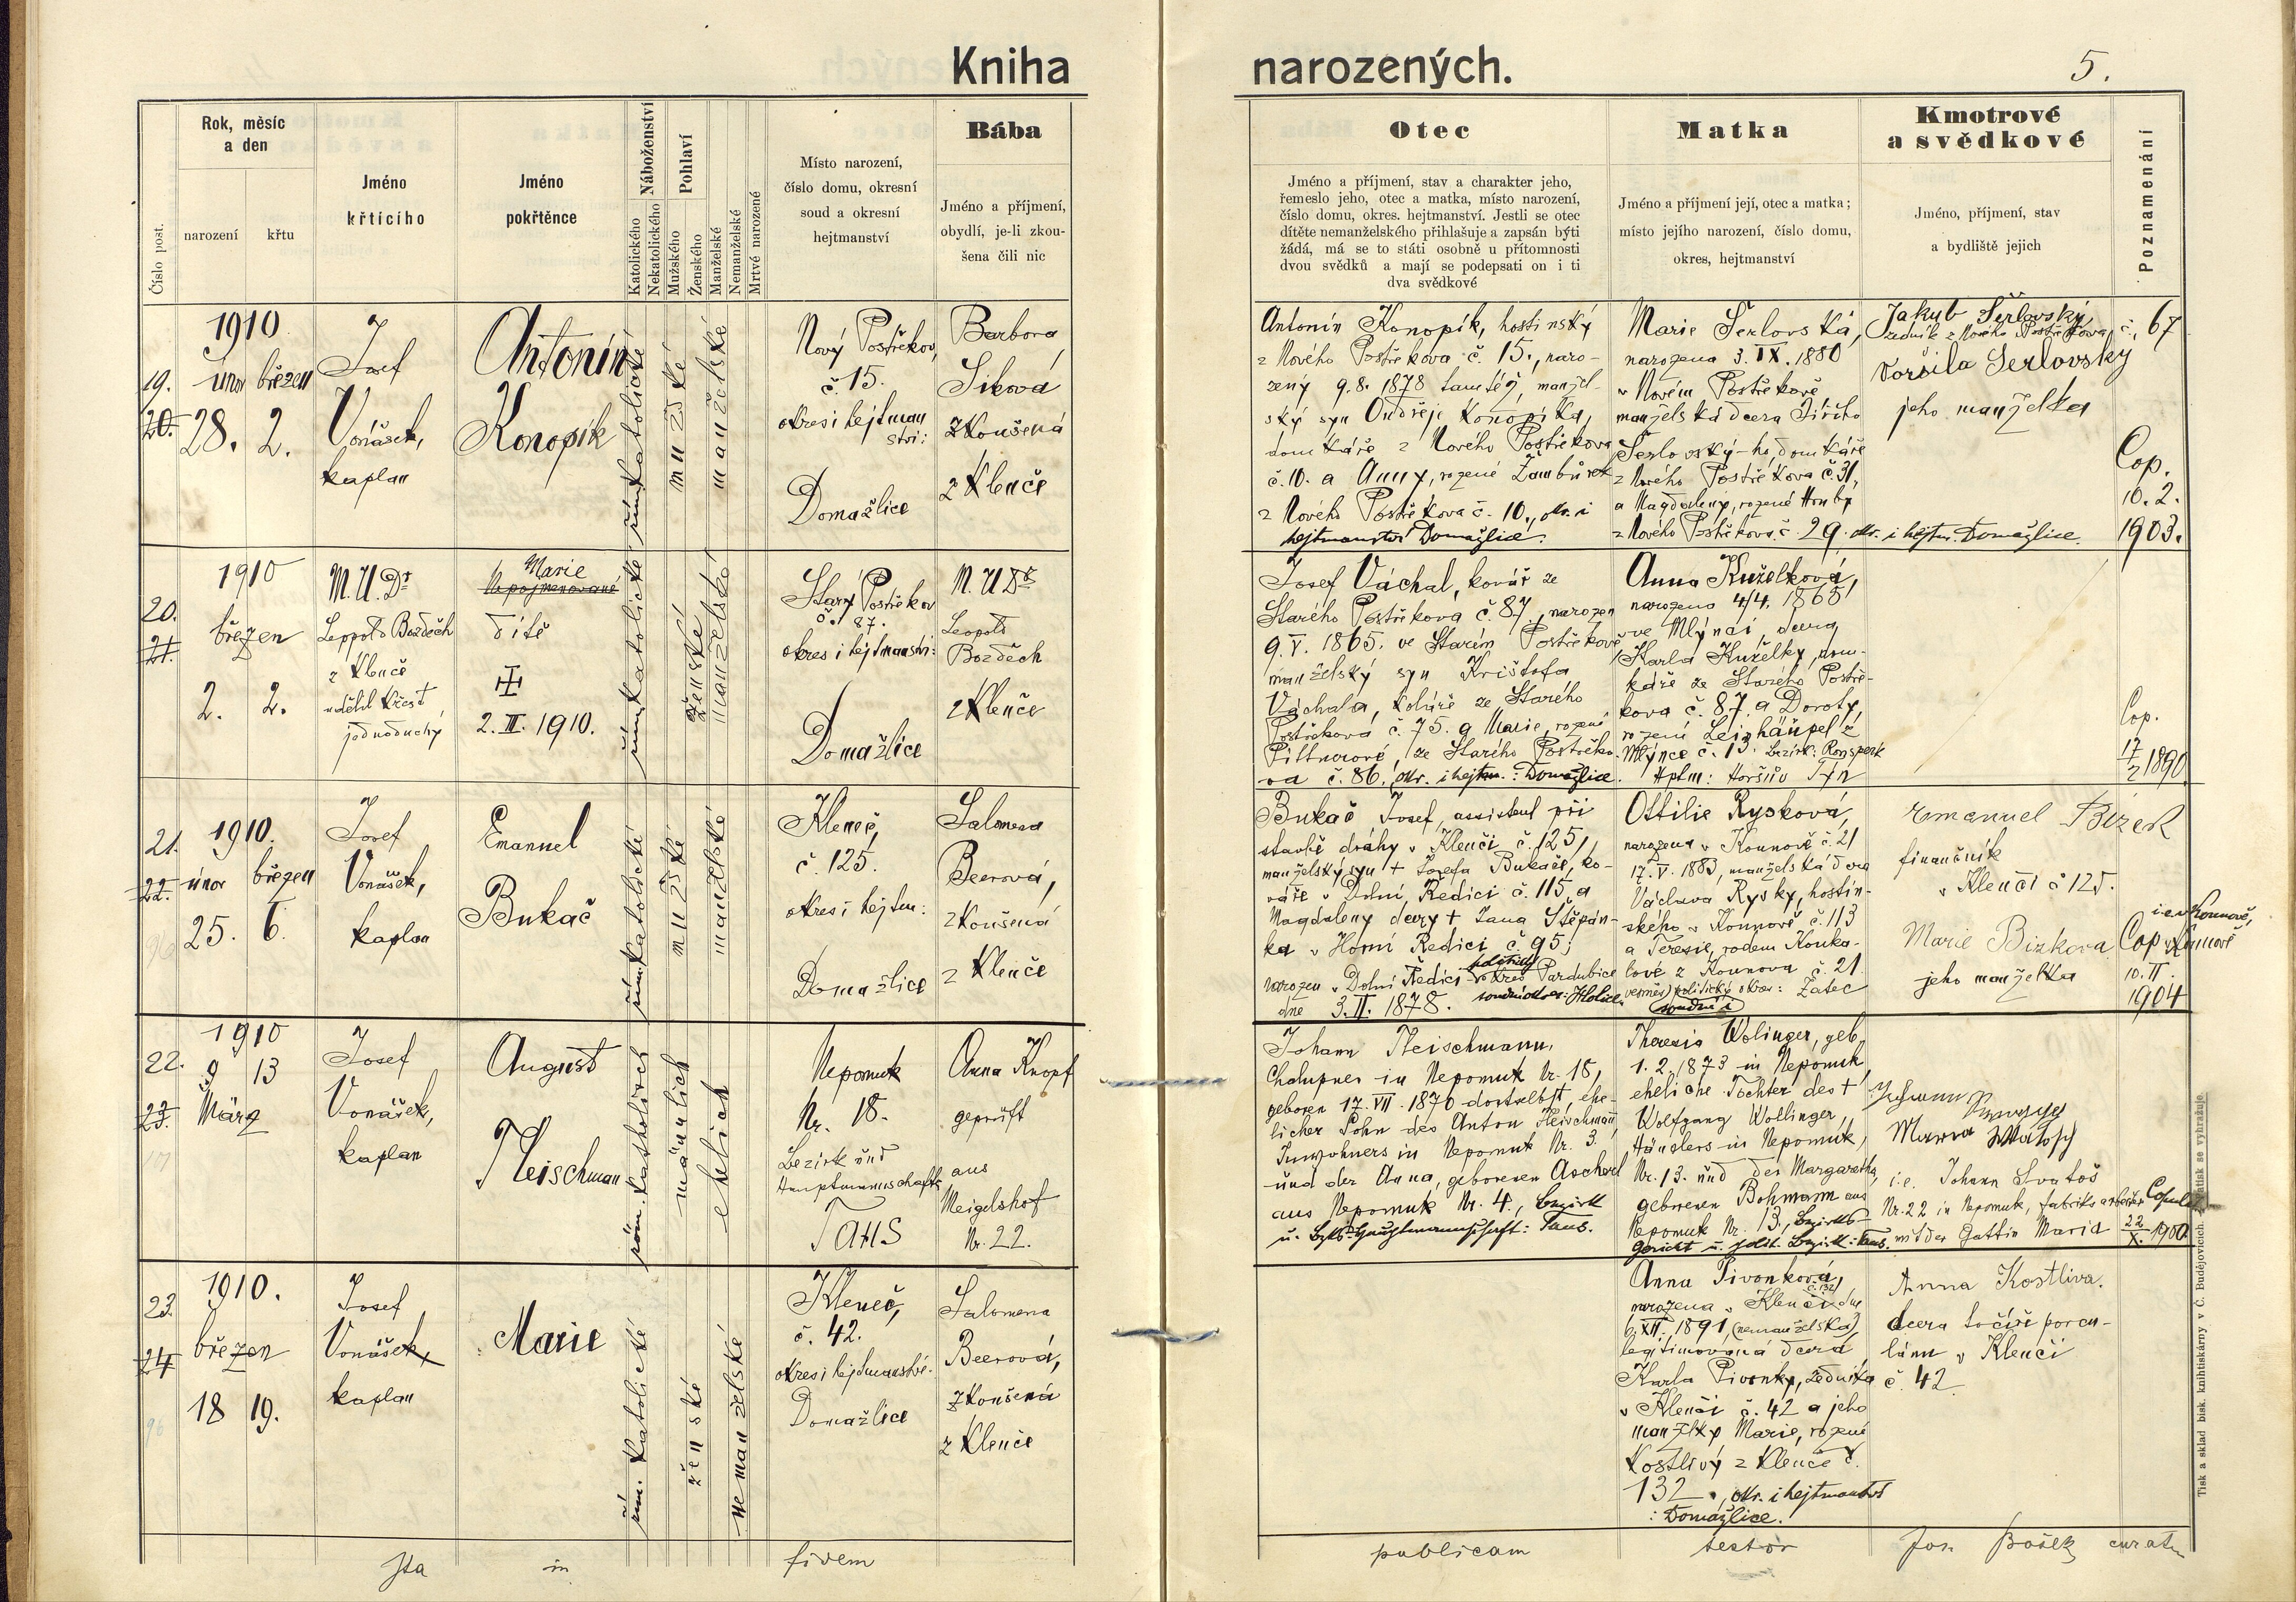 Kniha
narozených.
5.
Číslo post.
Rok, měsíc
a den
narození
křtu
Jméno
křtícího
Jméno
pokřtěnce
Náboženství
Katolického
Nekatolického
Pohlaví
Mužského
Ženského
Manželské
Nemanželské
Mrtvé narozené
Místo narození,
číslo domu, okresní
soud a okresní
hejtmanství
Bába
Jméno a příjmení,
obydlí, je-li zkou-
šena čili nic
Otec
Jméno a příjmení, stav a charakter jeho,
řemeslo jeho, otec a matka, místo narození,
číslo domu, okres. hejtmanství. Jestli se otec
dítěte nemanželského přihlašuje a zapsán býti
žádá, má se to státi osobně u přítomnosti
dvou svědků a mají se podepsati on i ti
dva svědkové
Matka
Jméno a příjmení její, otec a matka;
místo jejího narození, číslo domu,
okres, hejtmanství
Kmotrové
a svědkové
Jméno, příjmení, stav
a bydliště jejich
Poznamenání
19.
20.
1910
únor březen
28. 2.
Josef
Vonášek,
kaplan
Antonín
Konopík
řím. katolické
mužské
manželské
Nový Postřekov,
č. 15.
okres i hejtman
ství:
Domažlice
Barbora
Siková
zkoušená
z Klenče
Antonín Konopík, hostinský
z Nového Postřekova č. 15., naro-
zený 9.8. 1878 tamtéž, manžel-
ský syn Ondřeje Konopíka,
domkáře z Nového Postřekova
č. 10. a Anny, rozené Žambůrek
z Nového Postřekova č. 10., okr. i
hejtmanství Domažlice.
Marie Šerlovská,
narozena 3. IX. 1880
v Novém Postřekově
manželská dcera Jiřího
Šerlovský-ho, domkáře
z Nového Postřekova č. 31,
a Magdaleny, rozené Hruby
z Nového Postřekova č. 29. okr. i hejtm. Domažlice.
Jakub Šerlovský,
zedník z Nového Postřekova, č. 67
Voršila Serlovsky
jeho manželka
Cop.
10. 2.
1903.
20.
21.
1910
březen
2. 2.
M.U.Dr
Leopold Bozděch
z Klenče
udělil křest
jednoduchý
Marie
Nepojmenované
dítě
2. III. 1910.
řím. katolické
ženské
manželské
Starý Postřekov
č. 87.
okres i hejtmanství:
Domažlice
M.U.Dr
Leopold
Bozděch
z Klenče
Josef Váchal, kovář ze
Starého Postřekova č. 87, narozen
9. V. 1865. ve Starém Postřekově
manželský syn Krištofa
Váchala, kováře ze Starého
Postřekova č. 75. a Marie, rozené
Piltnerové, ze Starého Postřeko-
va č. 86. okr. i hejtm.: Domažlice.
Anna Kuželková,
narozena 4/4. 1865
ve Mlýnci, dcera
Karla Kuželky, dom-
káře ze Starého Postře-
kova č. 87. a Doroty,
rozené Leizhäupel z
Mlýnce č. 13. bezirk: Ronsperk
Hptm: Horšův Týn
Cop.
17
2 1890
21.
22.
1910.
únor březen
25. 6.
Josef
Vonášek,
kaplan
Emanuel
Bukač
řím. katolické
mužské
manželské
Kleneč,
č. 125.
okres i hejtm:
Domažlice
Salomena
Beerová,
zkoušená
z Klenče
Bukač Josef, assistent při
stavbě dráhy v Klenči č. 125,
manželský syn + Josefa Bukače, ko-
váře v Dolní Ředici č. 115, a
Magdaleny dcery + Jana Štěpán-
ka v Horní Ředici č. 95;
narozen v Dolní Ředici politický okres Pardubice
dne 3. II. 1878. soudní okres: Holice.
Ottilie Rysková,
narozena v Kounově č. 21
17. V. 1883, manželská dcera
Václava Rysky, hostin-
ského v Kounově č. 113
a Teresie, rodem Kouka-
lové z Kounova č. 21
(vesměs) politický okres: Žatec
soudní i
Emanuel Bízek
finančník
v Klenči č 125.
Marie Bizkova
jeho manželka
i.e. v Kounově,
Cop. v
10. II.
1904
22.
23.
1910
9 13
März
Josef
Vonášek,
kaplan
August
Fleischman
röm. katholisch
männlich
ehelich
Nepomuk
Nr. 18.
Bezirk und
Hauptmannschaft
TAUS
Anna Knopf
geprüft
aus
Meigelshof
Nr. 22.
Johann Fleischmann,
Chalupner in Nepomuk Nr. 18,
geboren 17. VII. 1870 dortselbst, ehe-
licher Sohn des Anton Fleischmann,
Inwohners in Nepomuk Nr. 3
und der Anna, geborenen Ascherl
aus Nepomuk Nr. 4., Bezirk
u. Bzks-Hauptmannschaft: Taus.
Theresia Wolinger, geb.
1. 2. 1873 in Nepomuk,
eheliche Tochter des +
Wolfgang Wollinger,
Händlers in Nepomuk,
Nr. 13. und der Margaretha,
geborenen Bohmann aus
Nepomuk Nr. 13., Bezirks-
gericht u. polit. Bezirk: Taus.
Johann
Maria
i.e. Johann Svatoš
Nr. 22 in Nepomuk, Fabriksarbeiter
mit der Gattin Maria
22
X. 1900
23.
24
1910.
březen
18 19.
Josef
Vonášek,
kaplan
Marie
řím. katolické
ženské
nemanželské
Kleneč,
č. 42.
okres i hejtmanství:
Domažlice
Salomena
Beerová,
zkoušená
z Klenče
Anna Pivonková,
č. 132
narozena v Klenči dne
XII. 1891, (nemanželská)
legitimovaná dcera
Karla Pivonky, zedníka
v Klenči č. 42 a jeho
manželky Marie, rozené
Kostlivý z Klenče č.
132., okr. i hejtmanství
: Domažlice.
Anna Kostliva.
dcera točíře porcu-
lánu v Klenči
č. 42
Ita in fidem publicam testor Jos. Bošek curatus
Tisk a sklad bisk. knihtiskárny v Č. Budějovicích. Patisk se vyhražuje.